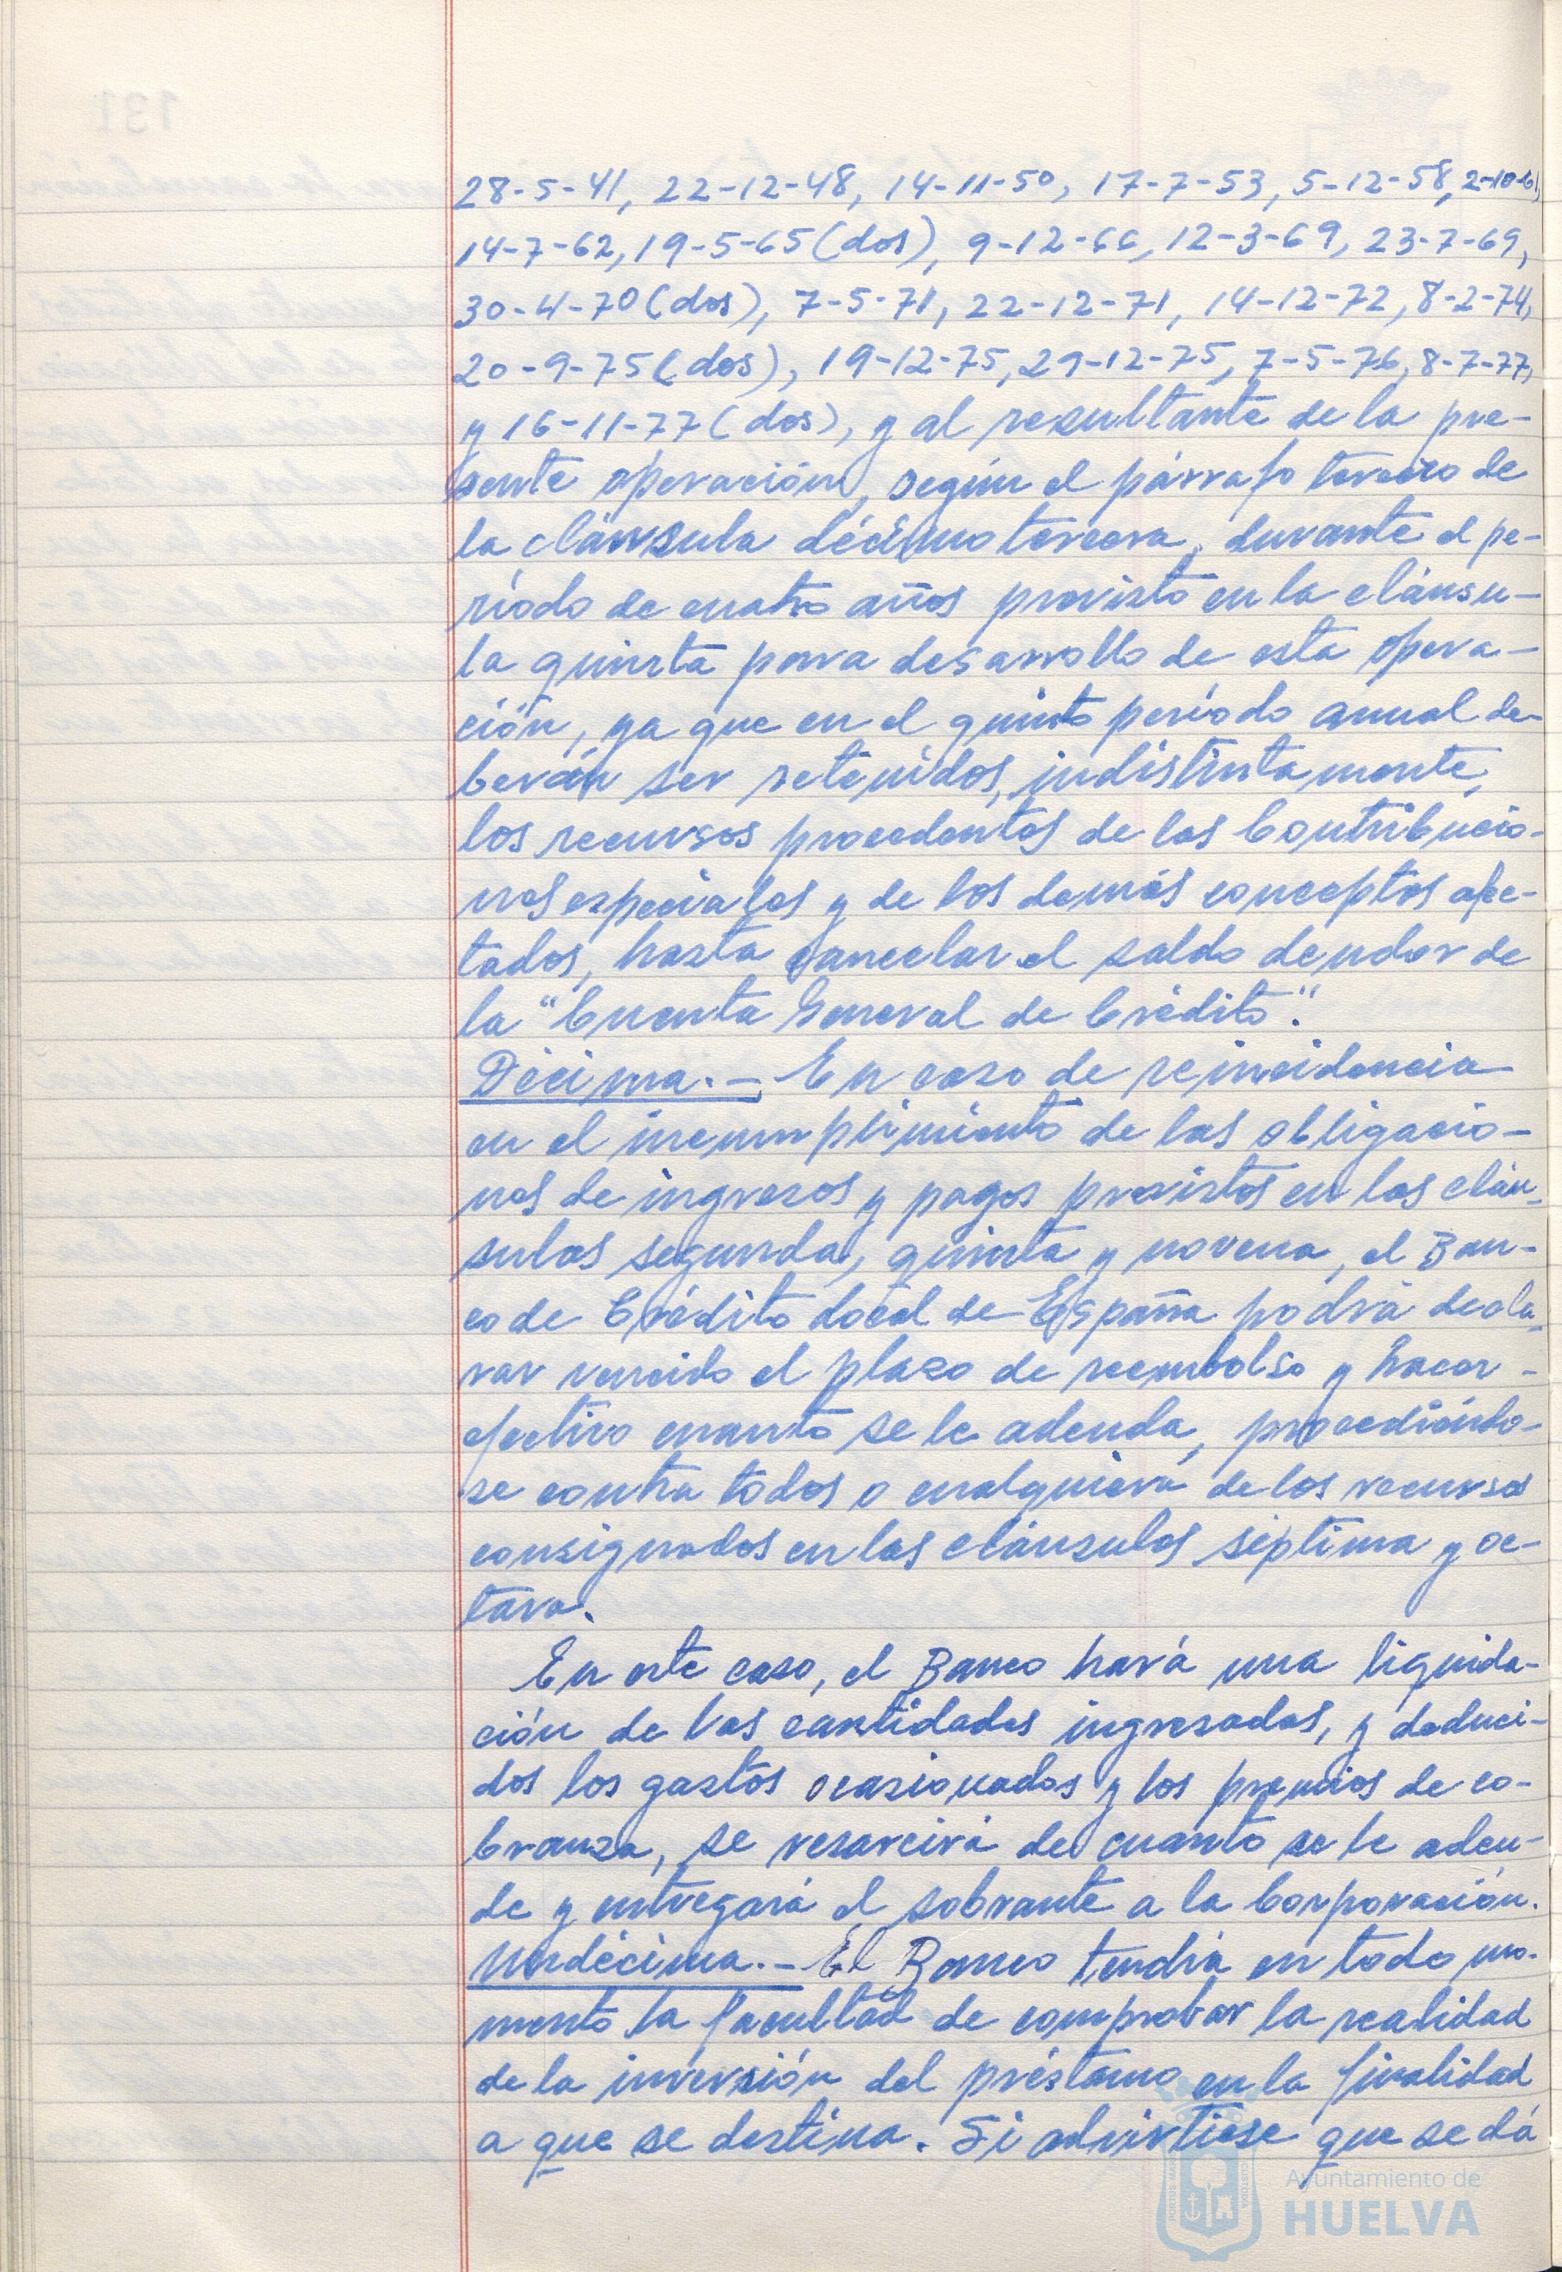 28-5-41, 22-12-48, 14-11-50, 17-7-53, 5-12-58, 2-10-61,
14-7-62, 19-5-65 (dos), 9-12-66, 12-3-69, 23-7-69,
30-4-70 (dos), 7-5-71, 22-12-71, 14-12-72, 8-2-74,
20-9-75 (dos), 19-12-75, 29-12-75, 7-5-76, 8-7-77,
y 16-11-77 (dos), y al resultante de la pre-
sente operación, según el párrafo tercero de
la cláusula décimo tercera, durante el pe-
ríodo de cuatro años previsto en la cláusu-
la quinta para desarrollo de esta opera-
ción, ya que en el quinto período anual de-
berán ser retenidos, indistintamente,
los recursos procedentes de las Contribucio-
nes especiales y de los demás conceptos afec-
tados, hasta cancelar el saldo deudor de
la "Cuenta General de Crédito".
Décima.- En caso de reincidencia
en el incumplimiento de las obligacio-
nes de ingresos y pagos previstos en las cláu-
sulas segunda, quinta y novena, el Ban-
co de Crédito Local de España podrá decla-
rar vencido el plazo de reembolso y hacer -
efectivo cuanto se le adeuda, procediéndo-
se contra todos o cualquiera de los recursos
consignados en las cláusulas séptima y oc-
tava.
En este caso, el Banco hará una liquida-
ción de las cantidades ingresadas, y deduci-
dos los gastos ocasionados y los premios de co-
branza, se resarcirá de cuanto se le adeu-
de y entregará el sobrante a la Corporación.
Undécima.- El Banco tendrá en todo mo-
mento la facultad de comprobar la realidad
de la inversión del préstamo en la finalidad
a que se destina. Si advirtiese que se dá
Ayuntamiento de
HUELVA